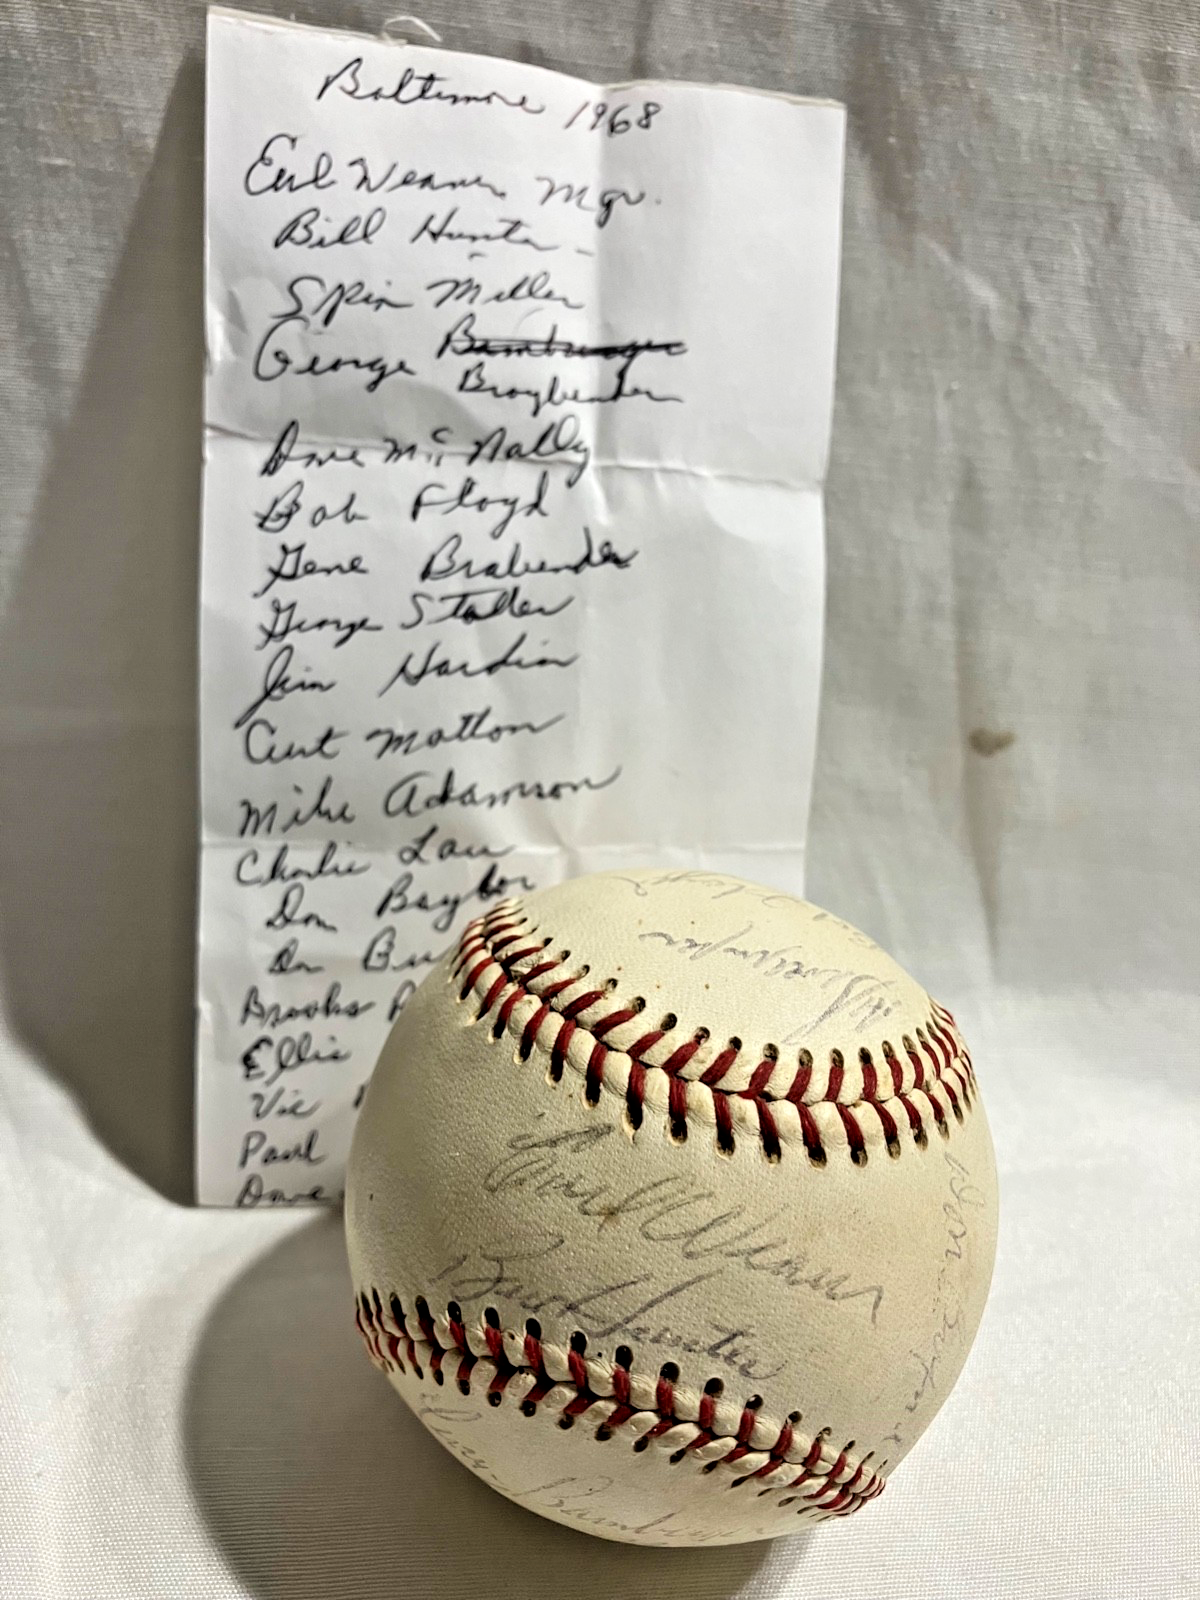 Baltimore 1968
Earl Weaver Mgr.
Bill Hunter -
Spin Miller
George Bambreger
Braybender
Dave McNally
Bob Floyd
Gene Brabender
George Staller
Jim Hardin
Curt Motton
Mike Adamson
Charlie Lau
Don Baylor
Don Bu
Brooks R
Ellis
Vic
Paul
Dave
Earl Weaver
Bill Hunter
Don Buford